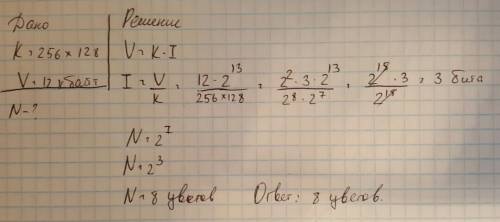 Дано
K = 256 × 128
V = 12 кбайт
N - ?
Решение
V = K · I
I = V/K = 12 · 2^13 / 256 × 128 = 2^2 · 3 · 2^13 / 2^8 · 2^7 = 2^15 · 3 / 2^15 = 3 бита
N = 2^I
N = 2^3
N = 8 цветов Ответ: 8 цветов.